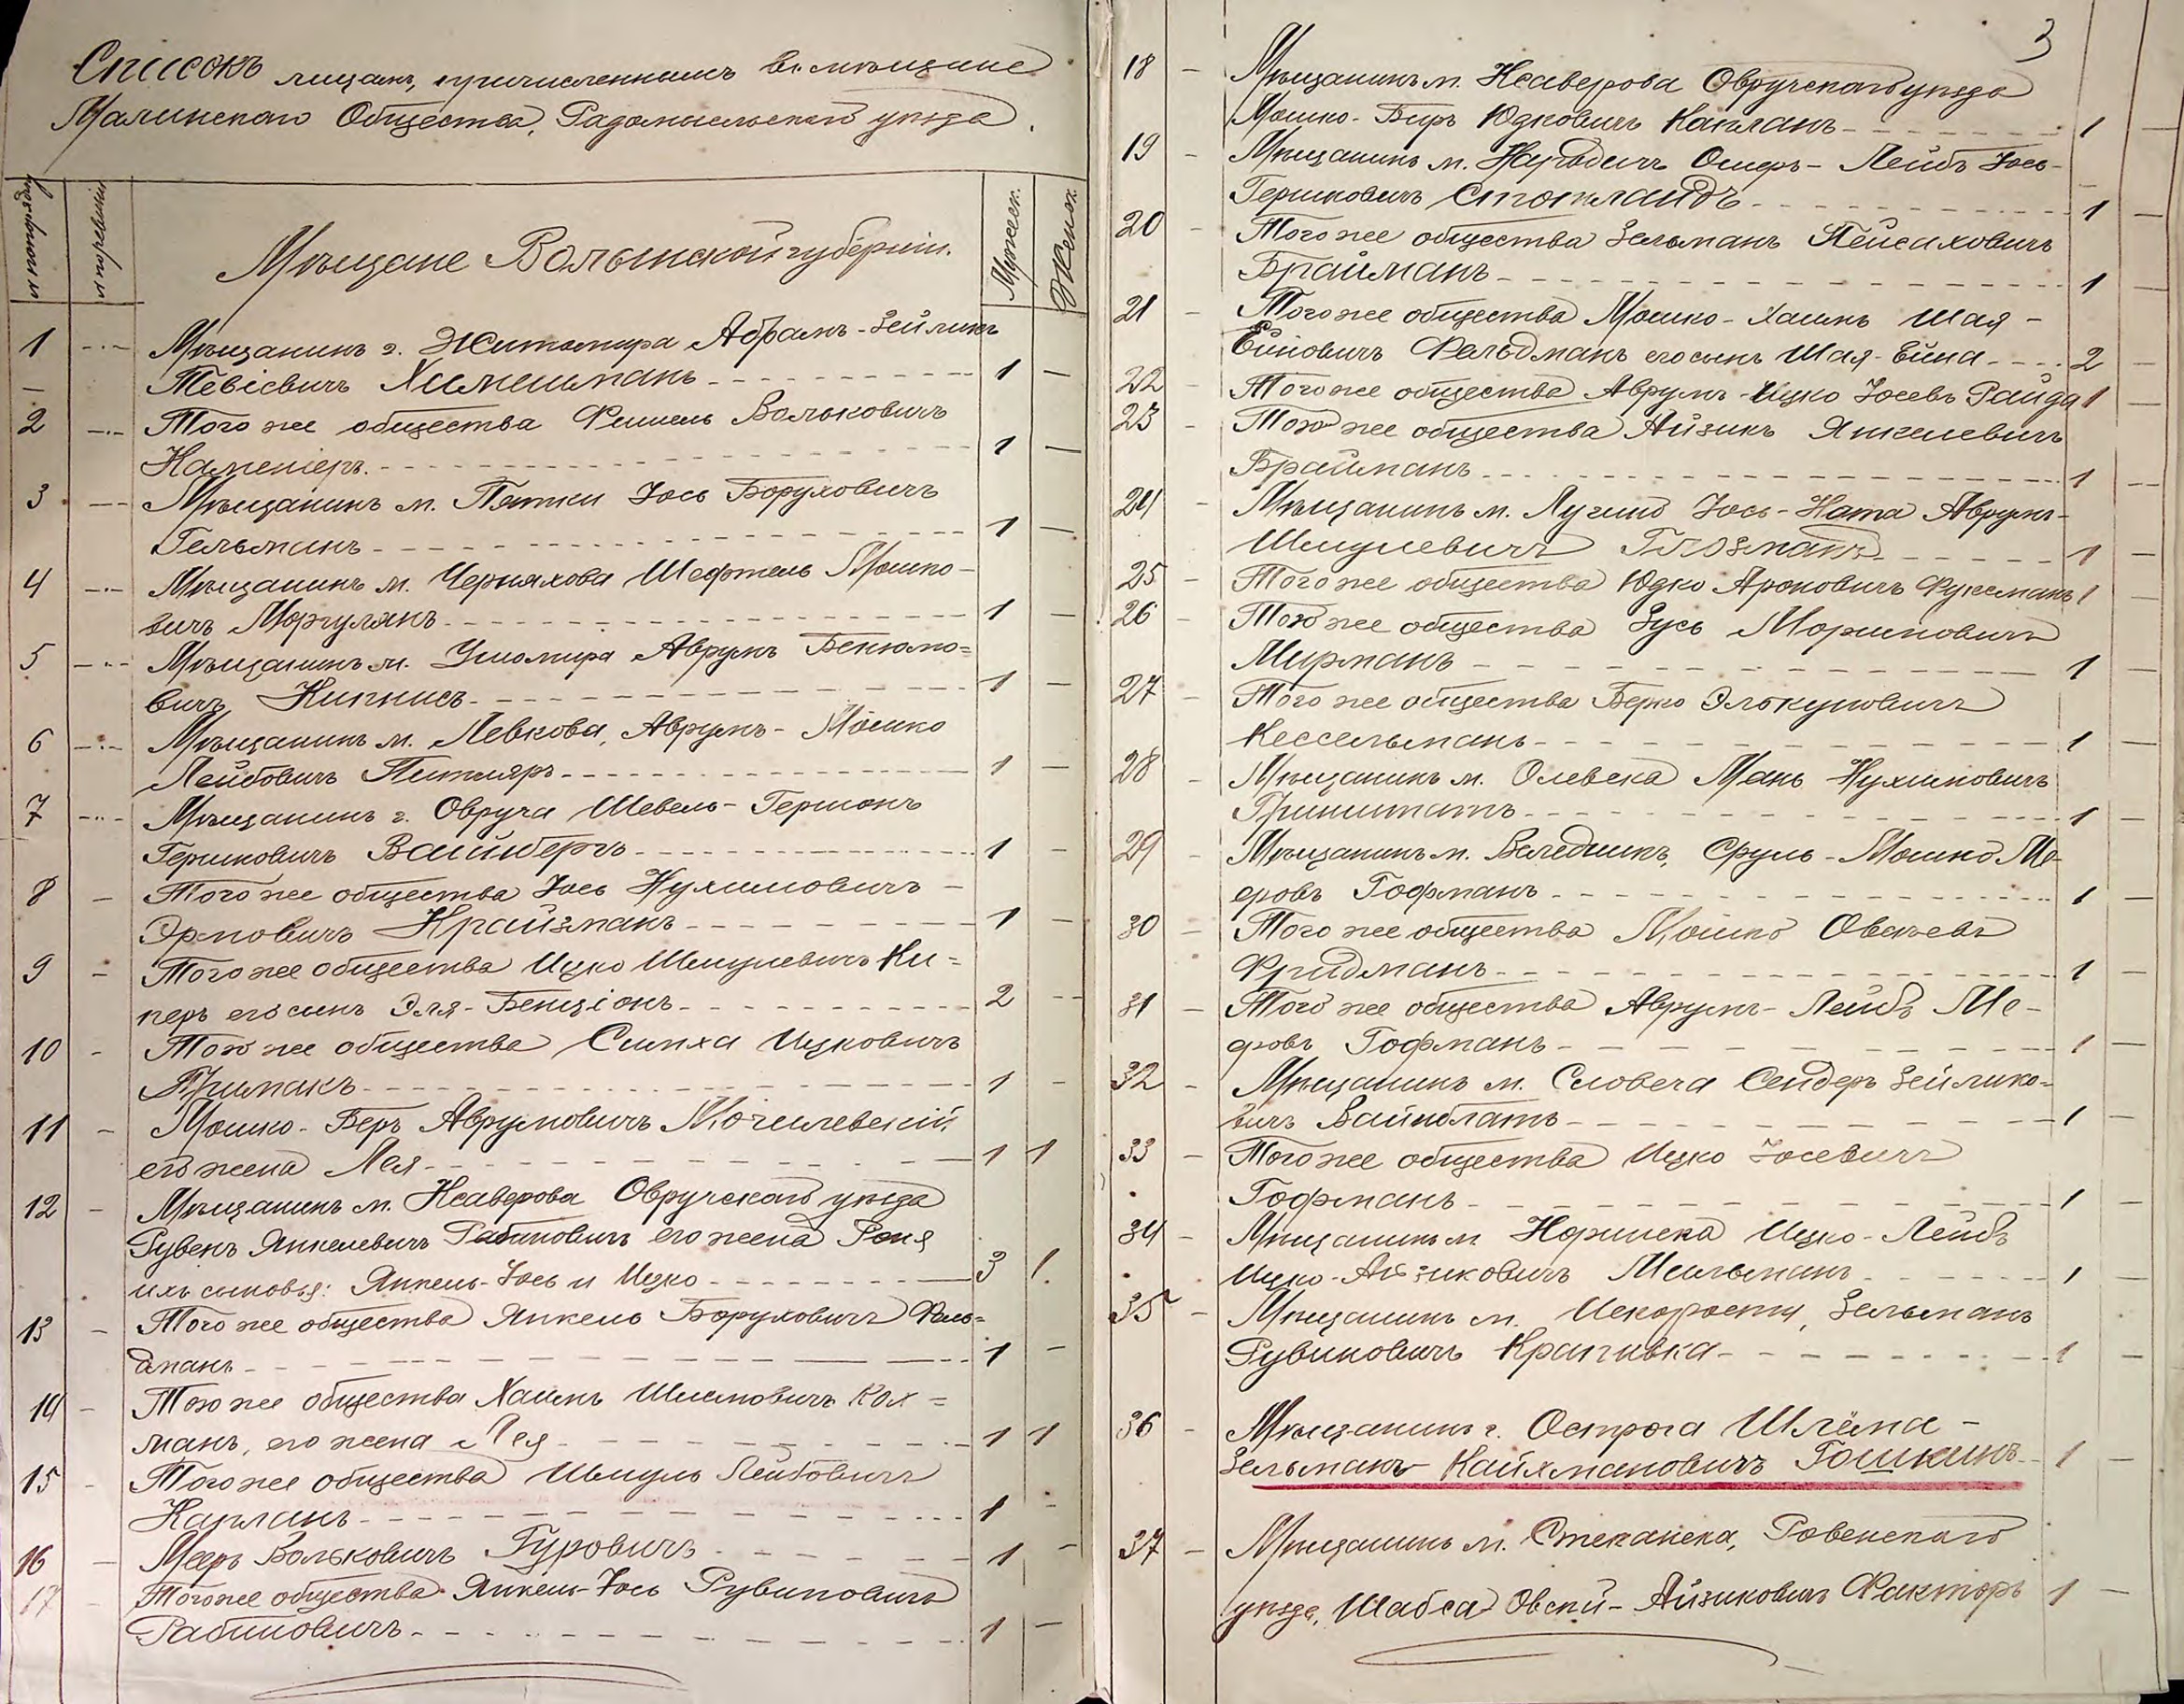 Списокъ лицамъ, причисленнымъ въ мѣщане
Малинскаго Общества, Радомысльскаго уѣзда.
Мужеск.
Женск.
Мѣщане Волынской губерніи.
1 Мѣщанинъ г. Житомира Абрамъ-Зейликъ
Тевіевичъ Химельманъ 1 —
2 Того же общества Фишель Вольковичъ
Каменіеръ. 1 —
3 Мѣщанинъ м. Пятки Іось Боруховичъ
Гельманъ 1 —
4 Мѣщанинъ м. Черняхова Шефтель Мошко-
вичъ Моргулянъ 1 —
5 Мѣщанинъ м. Ушомира Аврумъ Бенюмо=
вичъ Кипнисъ 1 —
6 Мѣщанинъ м. Левкова, Аврумъ-Мошко
Лейбовичъ Питляръ 1 —
7 Мѣщанинъ г. Овруча Шевель-Гершонъ
Гершковичъ Вайнбергъ 1 —
8 Того же общества Іось Нухимовичъ —
Эрповичъ Крайзманъ 1 —
9 Того же общества Ицко Шмулевичъ Ки=
перъ его сынъ Эля-Бенціонъ 2 —
10 Того же общества Симха Ицковичъ
Примакъ 1 —
11 Мошко-Беръ Аврумовичъ Могилевскій
его жена Лея 1 1
12 Мѣщанинъ м. Ксаверова Овручскаго уѣзда
Рувенъ Янкелевичъ Рабиновичъ его жена Роня
ихъ сыновья: Янкель-Іось и Ицко 3 1.
13 Того же общества Янкель Боруховичъ Фель=
дманъ 1 —
14 Того же общества Хаимъ Шлемовичъ Кол=
манъ, его жена Лея 1 1
15 Того же общества Шмуль Лейбовичъ
Капланъ 1 -
16 Мееръ Вольковичъ Гуровичъ 1 —
17 Того же общества Янкель-Іось Рувиновичъ
Рабиновичъ 1 —
3
18 Мѣщанинъ м. Ксаверова Овручскаго уѣзда
Мошко-Беръ Юдковичъ Капланъ 1 —
19 Мѣщанинъ м. Народичъ Ошеръ-Лейбъ Іось-
Гершковичъ Стокландъ 1 —
20 Того же общества Зельманъ Пейсаховичъ
Брайманъ 1 —
21 Того же общества Мошко-Хаимъ Шая-
Ейновичъ Фельдманъ его сынъ Шая-Ейна 2 —
22 Того же общества Аврумъ-Ицко Іосевъ Райда 1 —
23 Того же общества Айзикъ Янкелевичъ
Брайманъ 1 —
24 Мѣщанинъ м. Лугинъ Іось-Ната Аврумъ-
Шмулевичъ Глозманъ 1 —
25 Того же общества Юдко Ароновичъ Фуксманъ 1 —
26 Того же общества Зусь Моршковичъ
Мирманъ 1 —
27 Того же общества Берко Элькуновичъ
Кессельманъ 1 —
28 Мѣщанинъ м. Олевска Манъ Нухимовичъ
Гринштатъ 1 —
29 Мѣщанинъ м. Веледникъ, Сруль-Мошко Ме-
еровъ Гофманъ 1 —
30 Того же общества Мошко Овсеевъ
Фридманъ 1 —
31 Того же общества Аврумъ-Лейбъ Ме-
еровъ Гофманъ 1 —
32 Мѣщанинъ м. Словеча Сендеръ Зейлико=
вичъ Вайнблатъ 1 —
33 Того же общества Ицко Іосевичъ
Гофманъ 1 —
34 Мѣщанинъ м. Норинска Ицко-Лейбъ
Ицко-Айзиковичъ Мельманъ 1 —
35 Мѣщанинъ м. Искорости, Зельманъ
Рувиновичъ Крапивка 1 —
36 Мѣщанинъ г. Острога Шлёма-
Зельманъ Кайхмановичъ Гошкинъ 1 —
37 Мѣщанинъ м. Степанска, Ровенскаго
уѣзда, Шабса Овсій-Айзиковичъ Факторъ 1 —